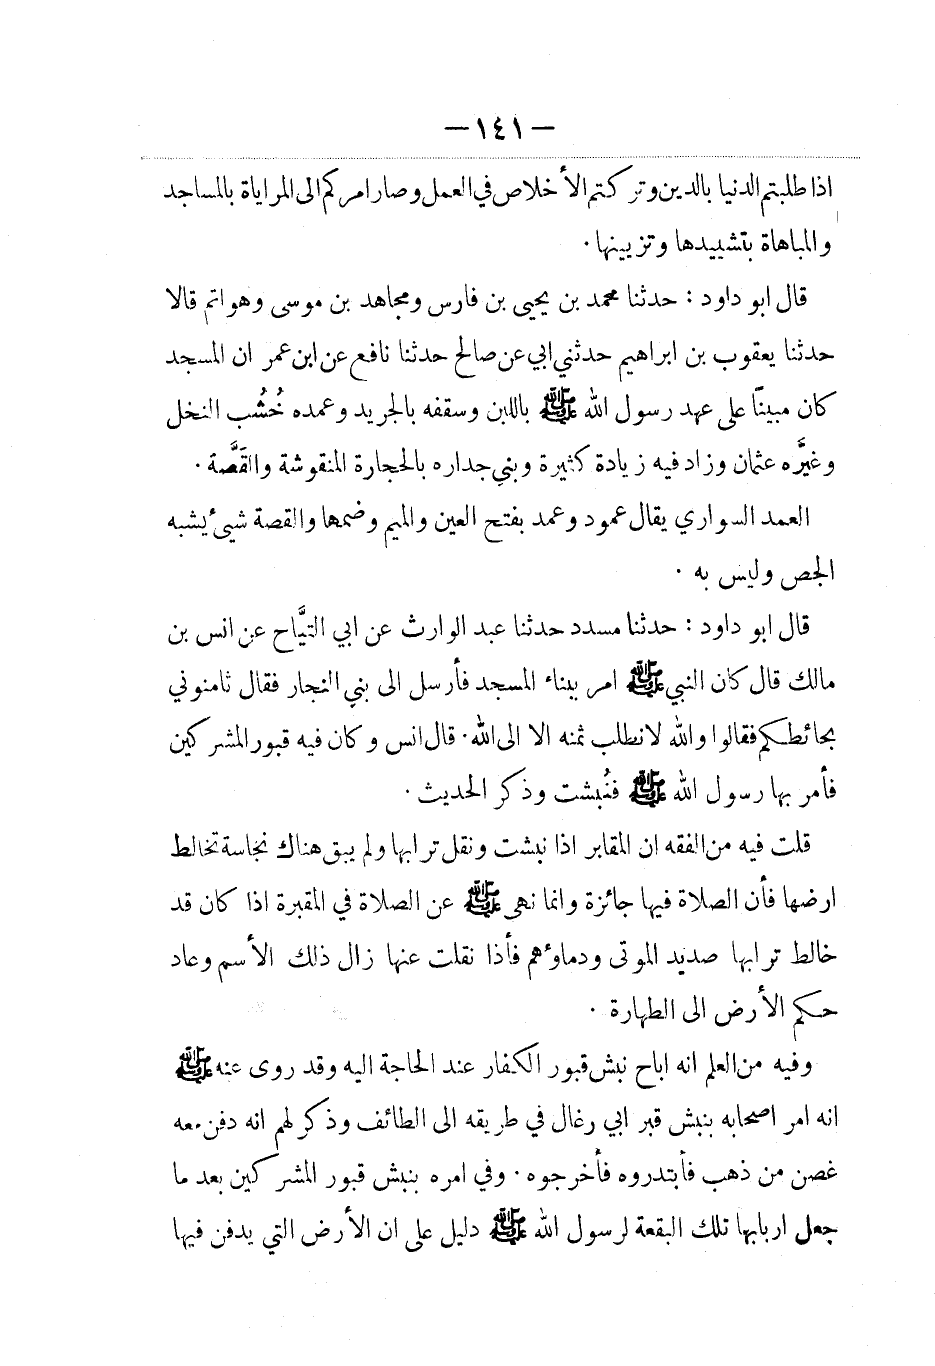 — ١٤١ —
اذا طلبتم الدنيا بالدين وتركتم الأخلاص في العمل وصار امركم الى المراياة بالمساجد
والمباهاة بتشييدها وتزيينها ·
قال ابو داود : حدثنا محمد بن يحيى بن فارس ومجاهد بن موسى وهو اتم قالا
حدثنا يعقوب بن ابراهيم حدثني ابي عن صالح حدثنا نافع عن ابن عمر ان المسجد
كان مبينًا على عهد رسول الله ﷺ باللبن وسقفه بالجريد وعمده خُشُب النخل
وغيَّره عثمان وزاد فيه زيادة كثيرة وبني جداره بالحجارة المنقوشة والقَصَّة ·
العمد السواري يقال عمود وعمد بفتح العين والميم وضمها والقصة شيئ يشبه
الجص وليس به ·
قال ابو داود : حدثنا مسدد حدثنا عبد الوارث عن ابي التيَّاح عن انس بن
مالك قال كان النبي ﷺ امر ببناء المسجد فأرسل الى بني النجار فقال ثامنوني
بحائطكم فقالوا والله لانطلب ثمنه الا الى الله · قال انس وكان فيه قبور المشركين
فأمر بها رسول الله ﷺ فنُبشت وذكر الحديث ·
قلت فيه من الفقه ان المقابر اذا نبشت ونقل ترابها ولم يبق هناك نجاسة تخالط
ارضها فأن الصلاة فيها جائزة وانما نهى ﷺ عن الصلاة في المقبرة اذا كان قد
خالط ترابها صديد الموتى ودماؤهم فأذا نقلت عنها زال ذلك الأسم وعاد
حكم الأرض الى الطهارة ·
وفيه من العلم انه اباح نبش قبور الكفار عند الحاجة اليه وقد روى عنه ﷺ
انه امر اصحابه بنبش قبر ابي رغال في طريقه الى الطائف وذكر لهم انه دفن معه
غصن من ذهب فأبتدروه فأخرجوه · وفي امره بنبش قبور المشركين بعد ما
جعل اربابها تلك البقعة لرسول الله ﷺ دليل على ان الأرض التي يدفن فيها